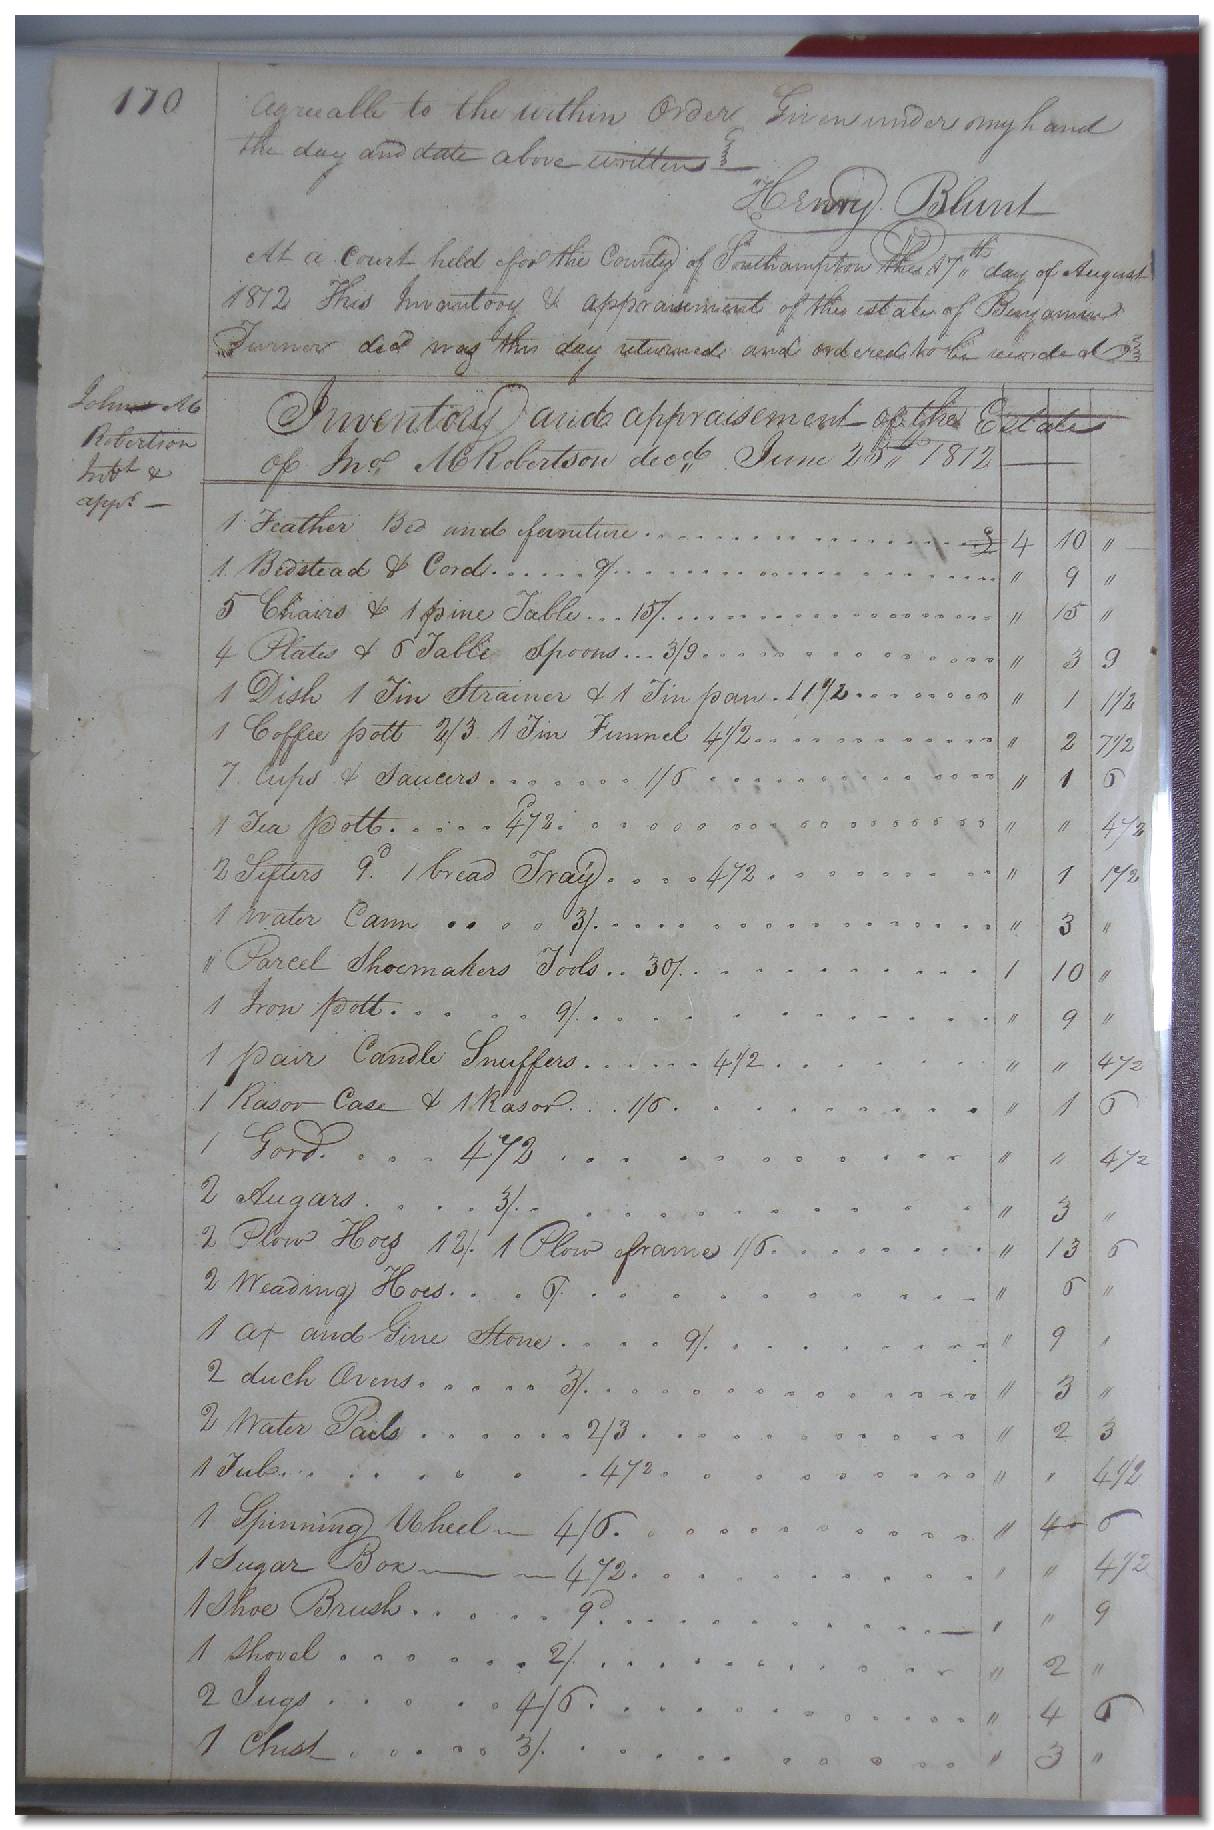 170
agreeable to the within Order Given under my hand
the day and date above written
Henry Blunt
At a Court held for the County of Southampton this 17th day of August
1812 This Inventory & appraisement of the estate of Benjamin
Turner decd was this day returned and ordered to be recorded
John M
Robertson
Invt &
appt —
Inventory and appraisement of the Estate
of Jno. M Robertson decd June 25th 1812
1 Feather Bed and furniture £ 4 10 "
1 Bedstead & Cord 9/ " 9 "
5 Chairs & 1 pine Table 15/ " 15 "
4 Plates & 6 Table Spoons 3/9 " 3 9
1 Dish 1 Tin Strainer & 1 Tin pan 1 1 1/2 " 1 1 1/2
1 Coffee pott 2/3 1 Tin Funnel 4 1/2 " 2 7 1/2
7 Cups & Saucers 1/6 " 1 6
1 Tea pott 4 1/2 " " 4 1/2
2 Sifters 9d 1 bread Tray 4 1/2 " 1 1 1/2
1 Water Cann 3/ " 3 "
" Parcel Shoemakers Tools 30/ 1 10 "
1 Iron pott 9/ " 9 "
1 pair Candle Snuffers 4 1/2 " " 4 1/2
1 Rasor Case & 1 Rasor 1/6 " 1 6
1 Gord 4 1/2 " " 4 1/2
2 Augars 3/ " 3 "
2 Plow Hoes 12/ 1 Plow frame 1/6 " 13 6
2 Weading Hoes 6/ " 6 "
1 ax and Gine Stone 9/ " 9 "
2 duch Ovens 3/ " 3 "
2 Water Pails 2/3 " 2 3
1 Tub 4 1/2 " " 4 1/2
1 Spinning Wheel 4/6 " 4 6
1 Sugar Box 4 1/2 " " 4 1/2
1 Shoe Brush 9d " " 9
1 Shovel 2/ " 2 "
2 Jugs 4/6 " 4 6
1 Chest 3/ " 3 "